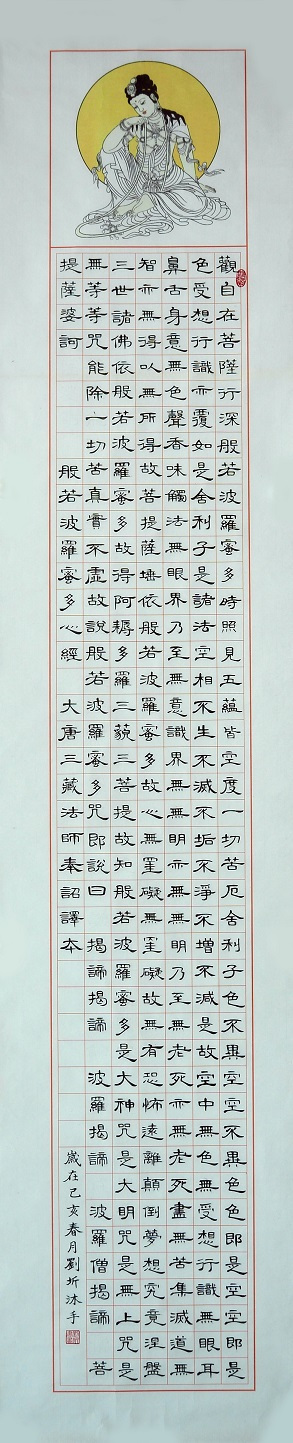 觀自在菩薩行深般若波羅蜜多時照見五蘊皆空度一切苦厄舍利子色不異空空不異色色即是空空即是
色受想行識亦覆如是舍利子是諸法空相不生不滅不垢不淨不增不減是故空中無色無受想行識無眼耳
鼻舌身意無色聲香味觸法無眼界乃至無意識界無無明亦無無明乃至無老死亦無老死盡無苦集滅道無
智亦無得以無所得故菩提薩埵依般若波羅蜜多故心無罣礙無罣礙故無有恐怖遠離顛倒夢想究竟涅盤
三世諸佛依般若波羅蜜多故得阿耨多羅三藐三菩提故知般若波羅蜜多是大神咒是大明咒是無上咒是
無等等咒能除一切苦真實不虛故說般若波羅蜜多咒即說曰 揭諦揭諦 波羅揭諦 波羅僧揭諦 菩
提薩婆訶 般若波羅蜜多心經 大唐三藏法師奉詔譯本
歲在己亥春月劉圻沐手